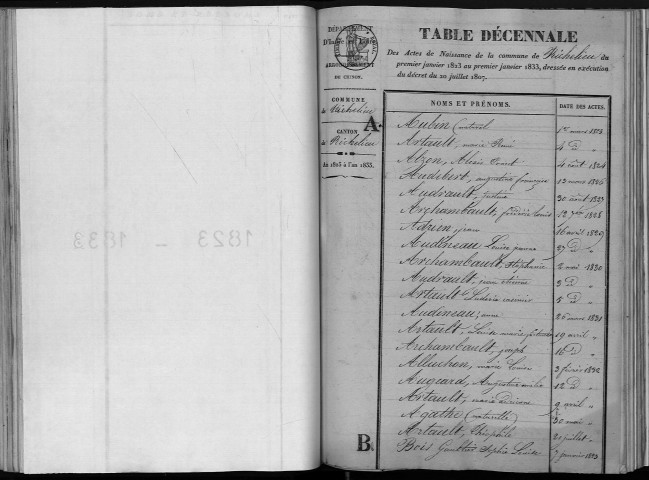 1823 - 1833
DÉPARTEMENT
D'Indre et Loire
ARRONDISSEMENT
DE CHINON.
COMMUNE
de Richelieu
CANTON
de Richelieu
An 1823 à l'an 1833.
TABLE DÉCENNALE
Des Actes de Naissance de la commune de Richelieu du
premier janvier 1823 au premier janvier 1833, dressée en exécution
du décret du 20 juillet 1807.
NOMS ET PRÉNOMS. DATE DES ACTES.
A. Aubin (naturel 1er mars 1823
Artault, marie 4 d° "
Alzon, Alexis 4 août 1824
Audibert, augustine françoise 13 mars 1826
Audrault, 30 août 1827
Archambault, frédéric louis 12 1828
Adrien, jean 16 avril 1829
Audineau Louise 27 d° "
Archambault, Stéphanie 2 mai 1830
Audrault, jean étienne 3 d° "
Artault casimir 5 d° "
Audineau, anne 26 mars 1831
Artault, Louise marie 19 avril "
Archambault, joseph 16 d° "
Alluchon, marie Louise 3 février 1832
Augeard, 12 d° "
Artault, marie 9 avril "
Agathe (naturelle) 30 mai "
Artault, Théophile 20 juillet "
B Bois Sophie Louise 7 janvier 1823